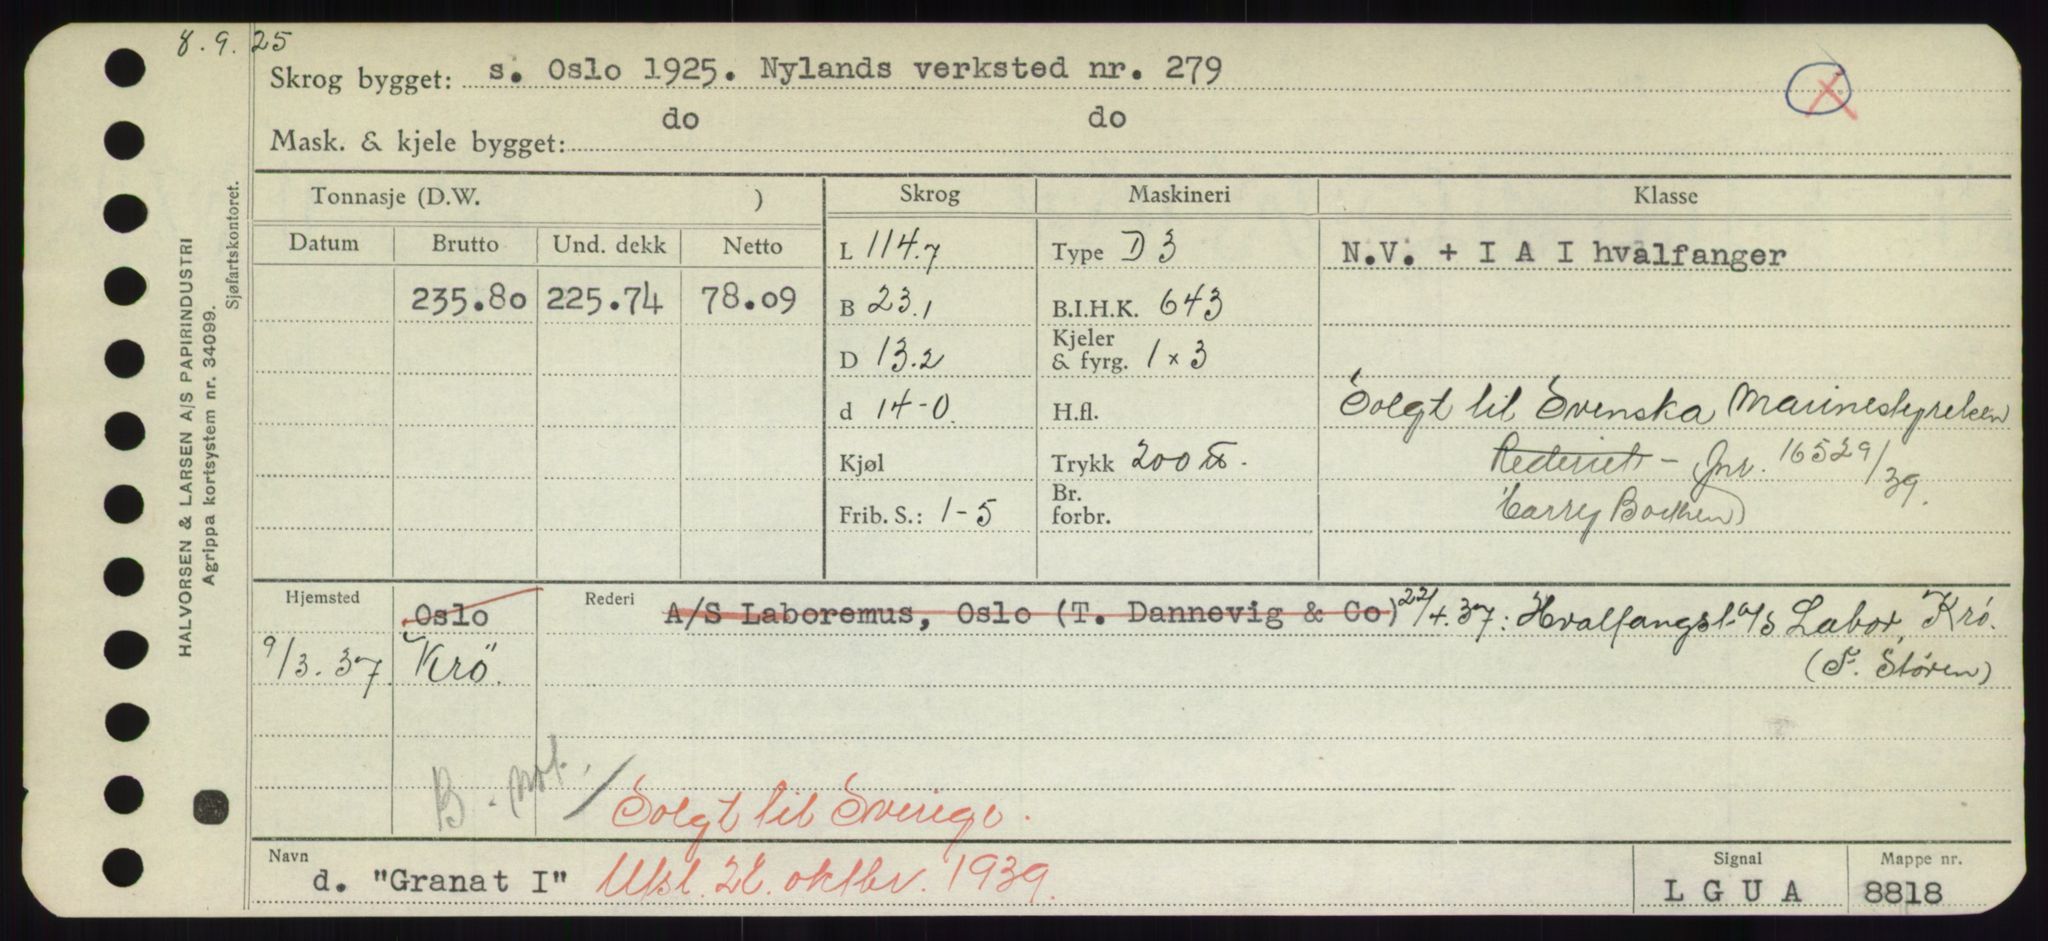 8.9.25
Skrog bygget: s. Oslo 1925. Nylands verksted nr. 279
Mask. & kjele bygget: do do
Tonnasje (D.W. ) Skrog Maskineri Klasse
Datum Brutto Und. dekk Netto L 114.7 Type D 3 N.V. + I A I hvalfanger
235.80 225.74 78.09 B 23.1 B.I.H.K. 643
D 13.2 Kjeler & fyrg. 1 x 3
d 14-0. H.fl. Solgt til Svenska Marinestyrelsen
Kjøl Trykk 200 Rederiet - Jnr. 16529/39.
Frib. S.: 1-5 Br. forbr. Harry
Hjemsted Oslo Rederi A/S Laboremus, Oslo (T. Dannevig & Co) 22/4.37: Hvalfangst-A/S Labor, Krö.
9/3.37 Krö. (S. Stören)
B-not.
Solgt til Sverige.
Navn d. "Granat I" Utsl. oktbr. 1939. Signal L G U A Mappe nr. 8818
HALVORSEN & LARSEN A/S PAPIRINDUSTRI
Agrippa kortsystem nr. 34099.
Sjøfartskontoret.